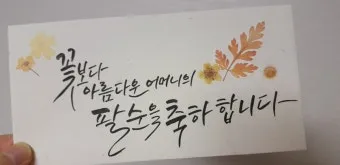 꽃보다
아름다운 어머니의
팔순을 축하합니다